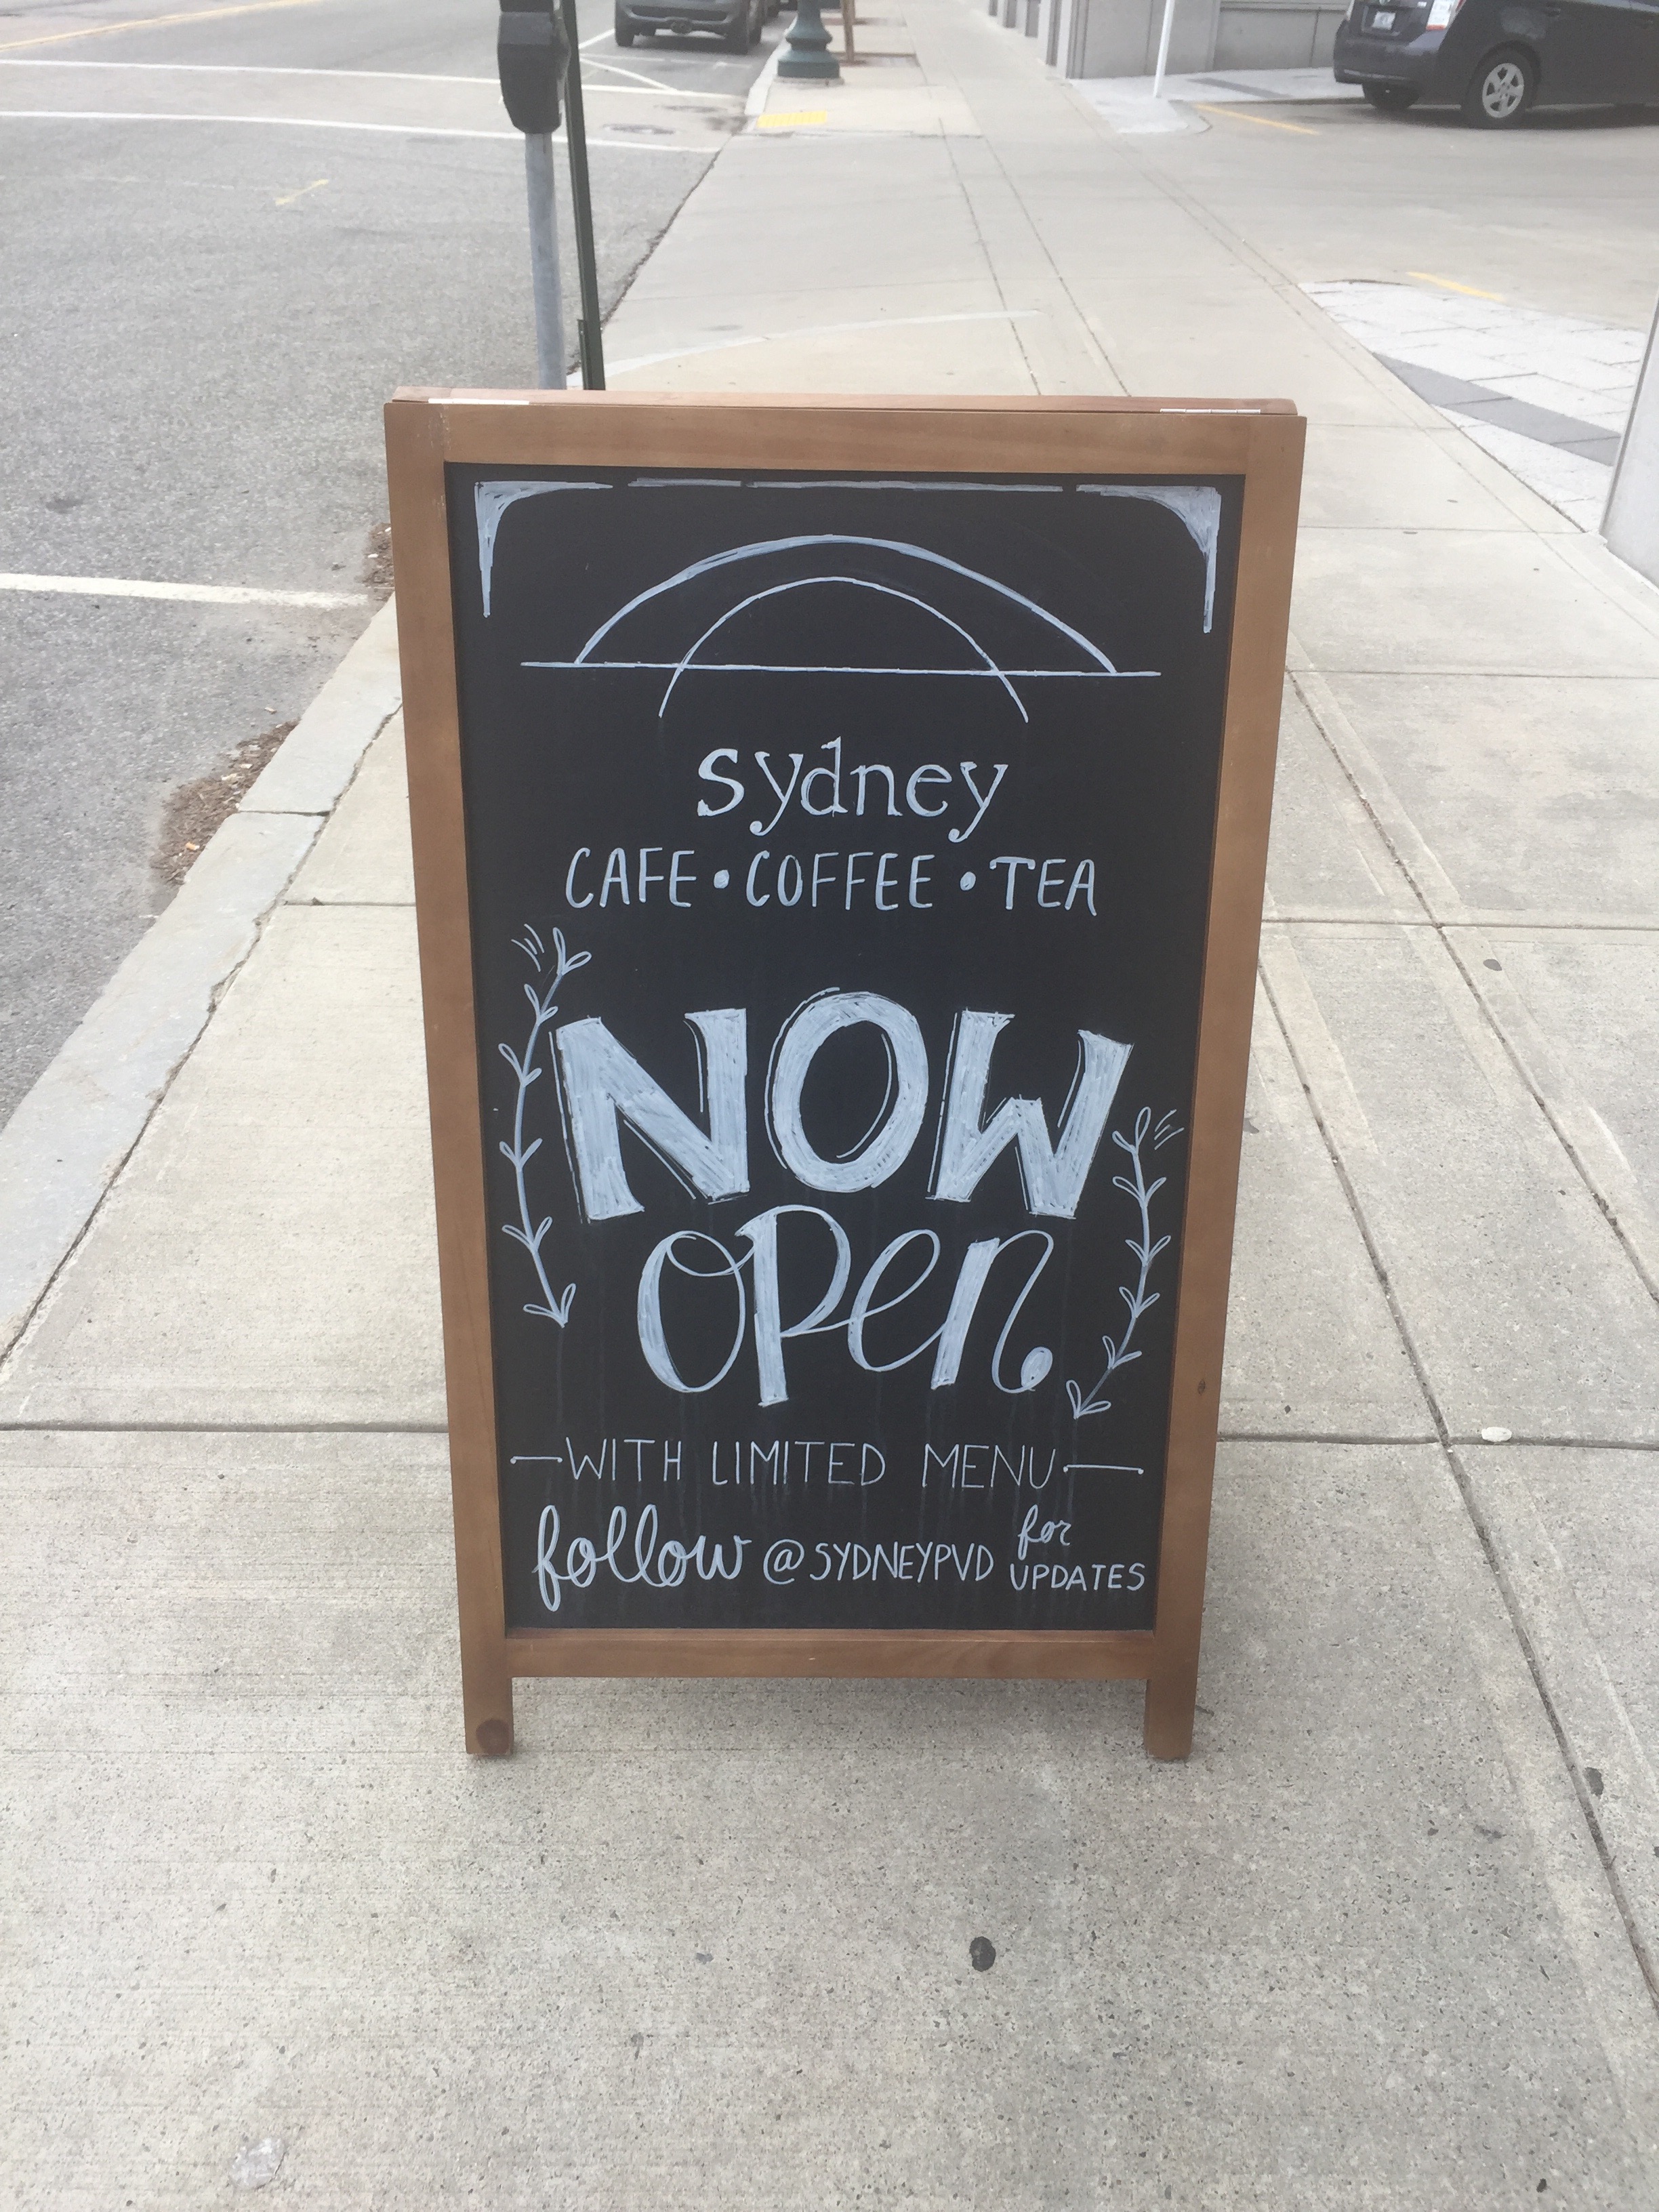 sydney
CAFE • COFFEE • TEA
NOW
open
WITH LIMITED MENU
follow @SYDNEYPVD for UPDATES